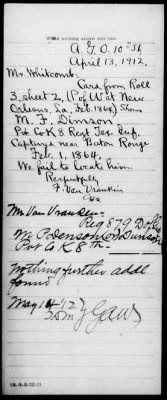 Write nothing above this line
A. G. O. 10" St
April 13, 1912.
Mr. Whitcomb:
Card from Roll
3, sheet 2, (P of W at New
Orleans, La, Feb. 1864) Shows
M. F. Dimson
Pvt Co K 8 Regt Tex Inf.
Captured near Baton Rouge
Feb. 1, 1864.
We fail to locate him.
Respectfully
F. Van Vrankin
Mr Van Vranken:
Reg 879
M. P. Denson (or) Dimson
Pvt Co K 8th
Nothing further addl
found
May 14 '12